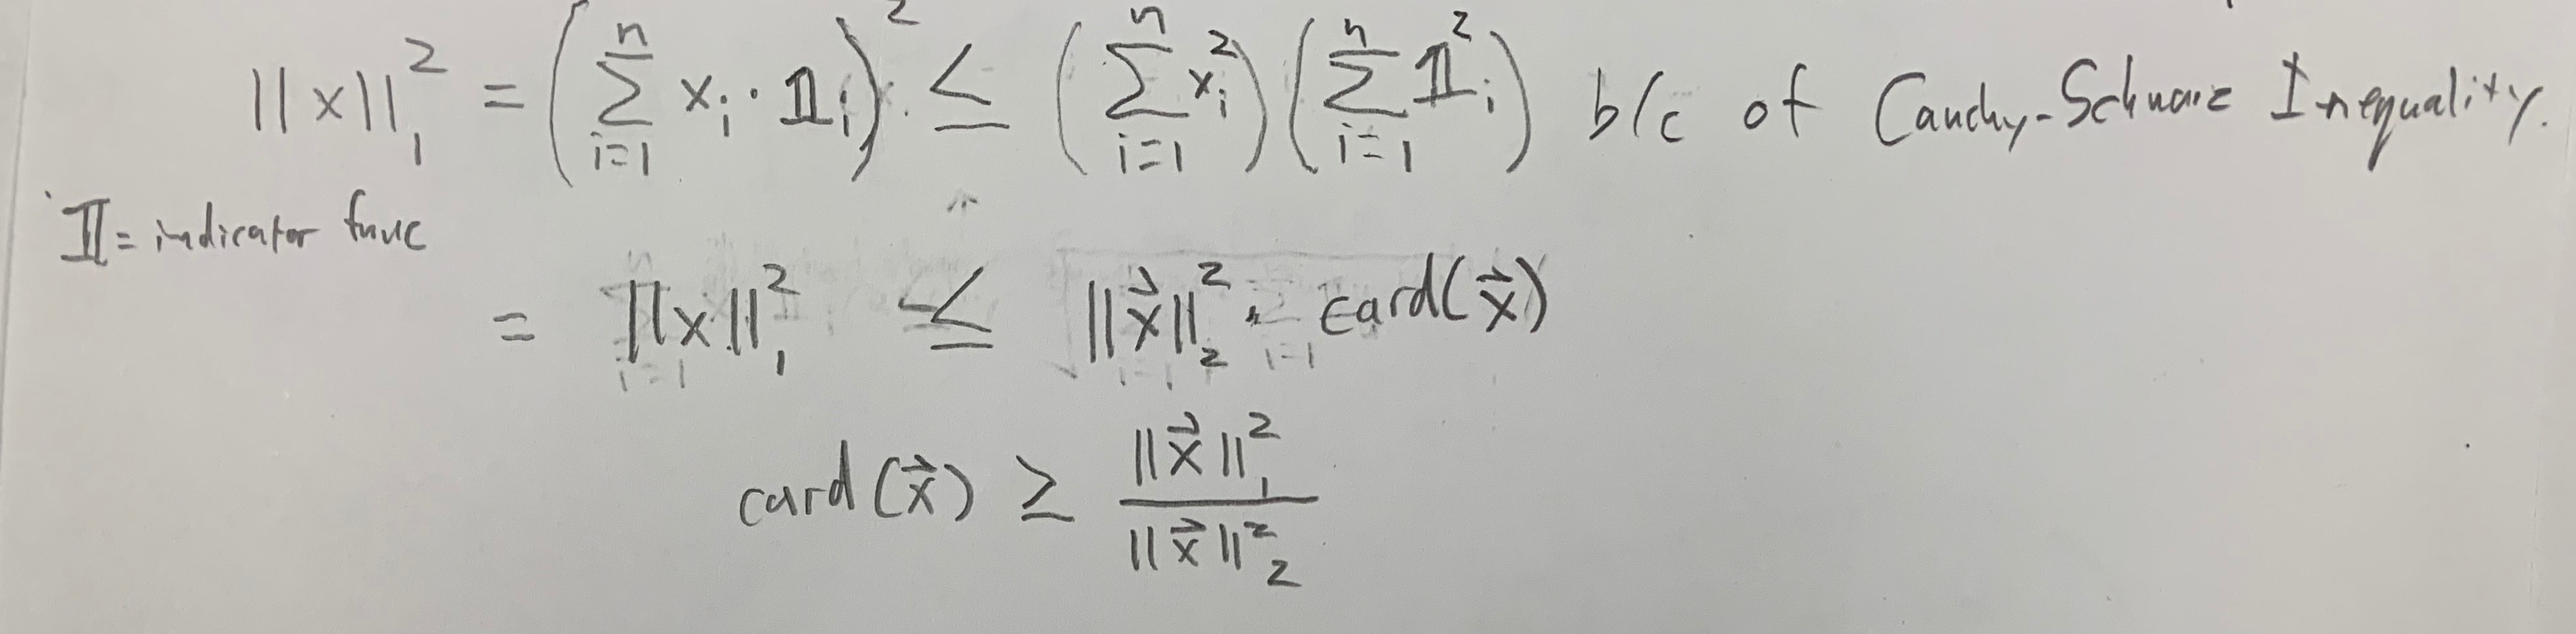 ||x||₁² = (∑ᵢ₌₁ⁿ xᵢ · 𝟙ᵢ)² ≤ (∑ᵢ₌₁ⁿ xᵢ²)(∑ᵢ₌₁ⁿ 𝟙ᵢ²) b/c of Cauchy-Schwarz Inequality.
𝟙 = indicator func
= ||x||₁² ≤ ||x⃗||₂² · card(x⃗)
card(x⃗) ≥ ||x⃗||₁² / ||x⃗||₂²